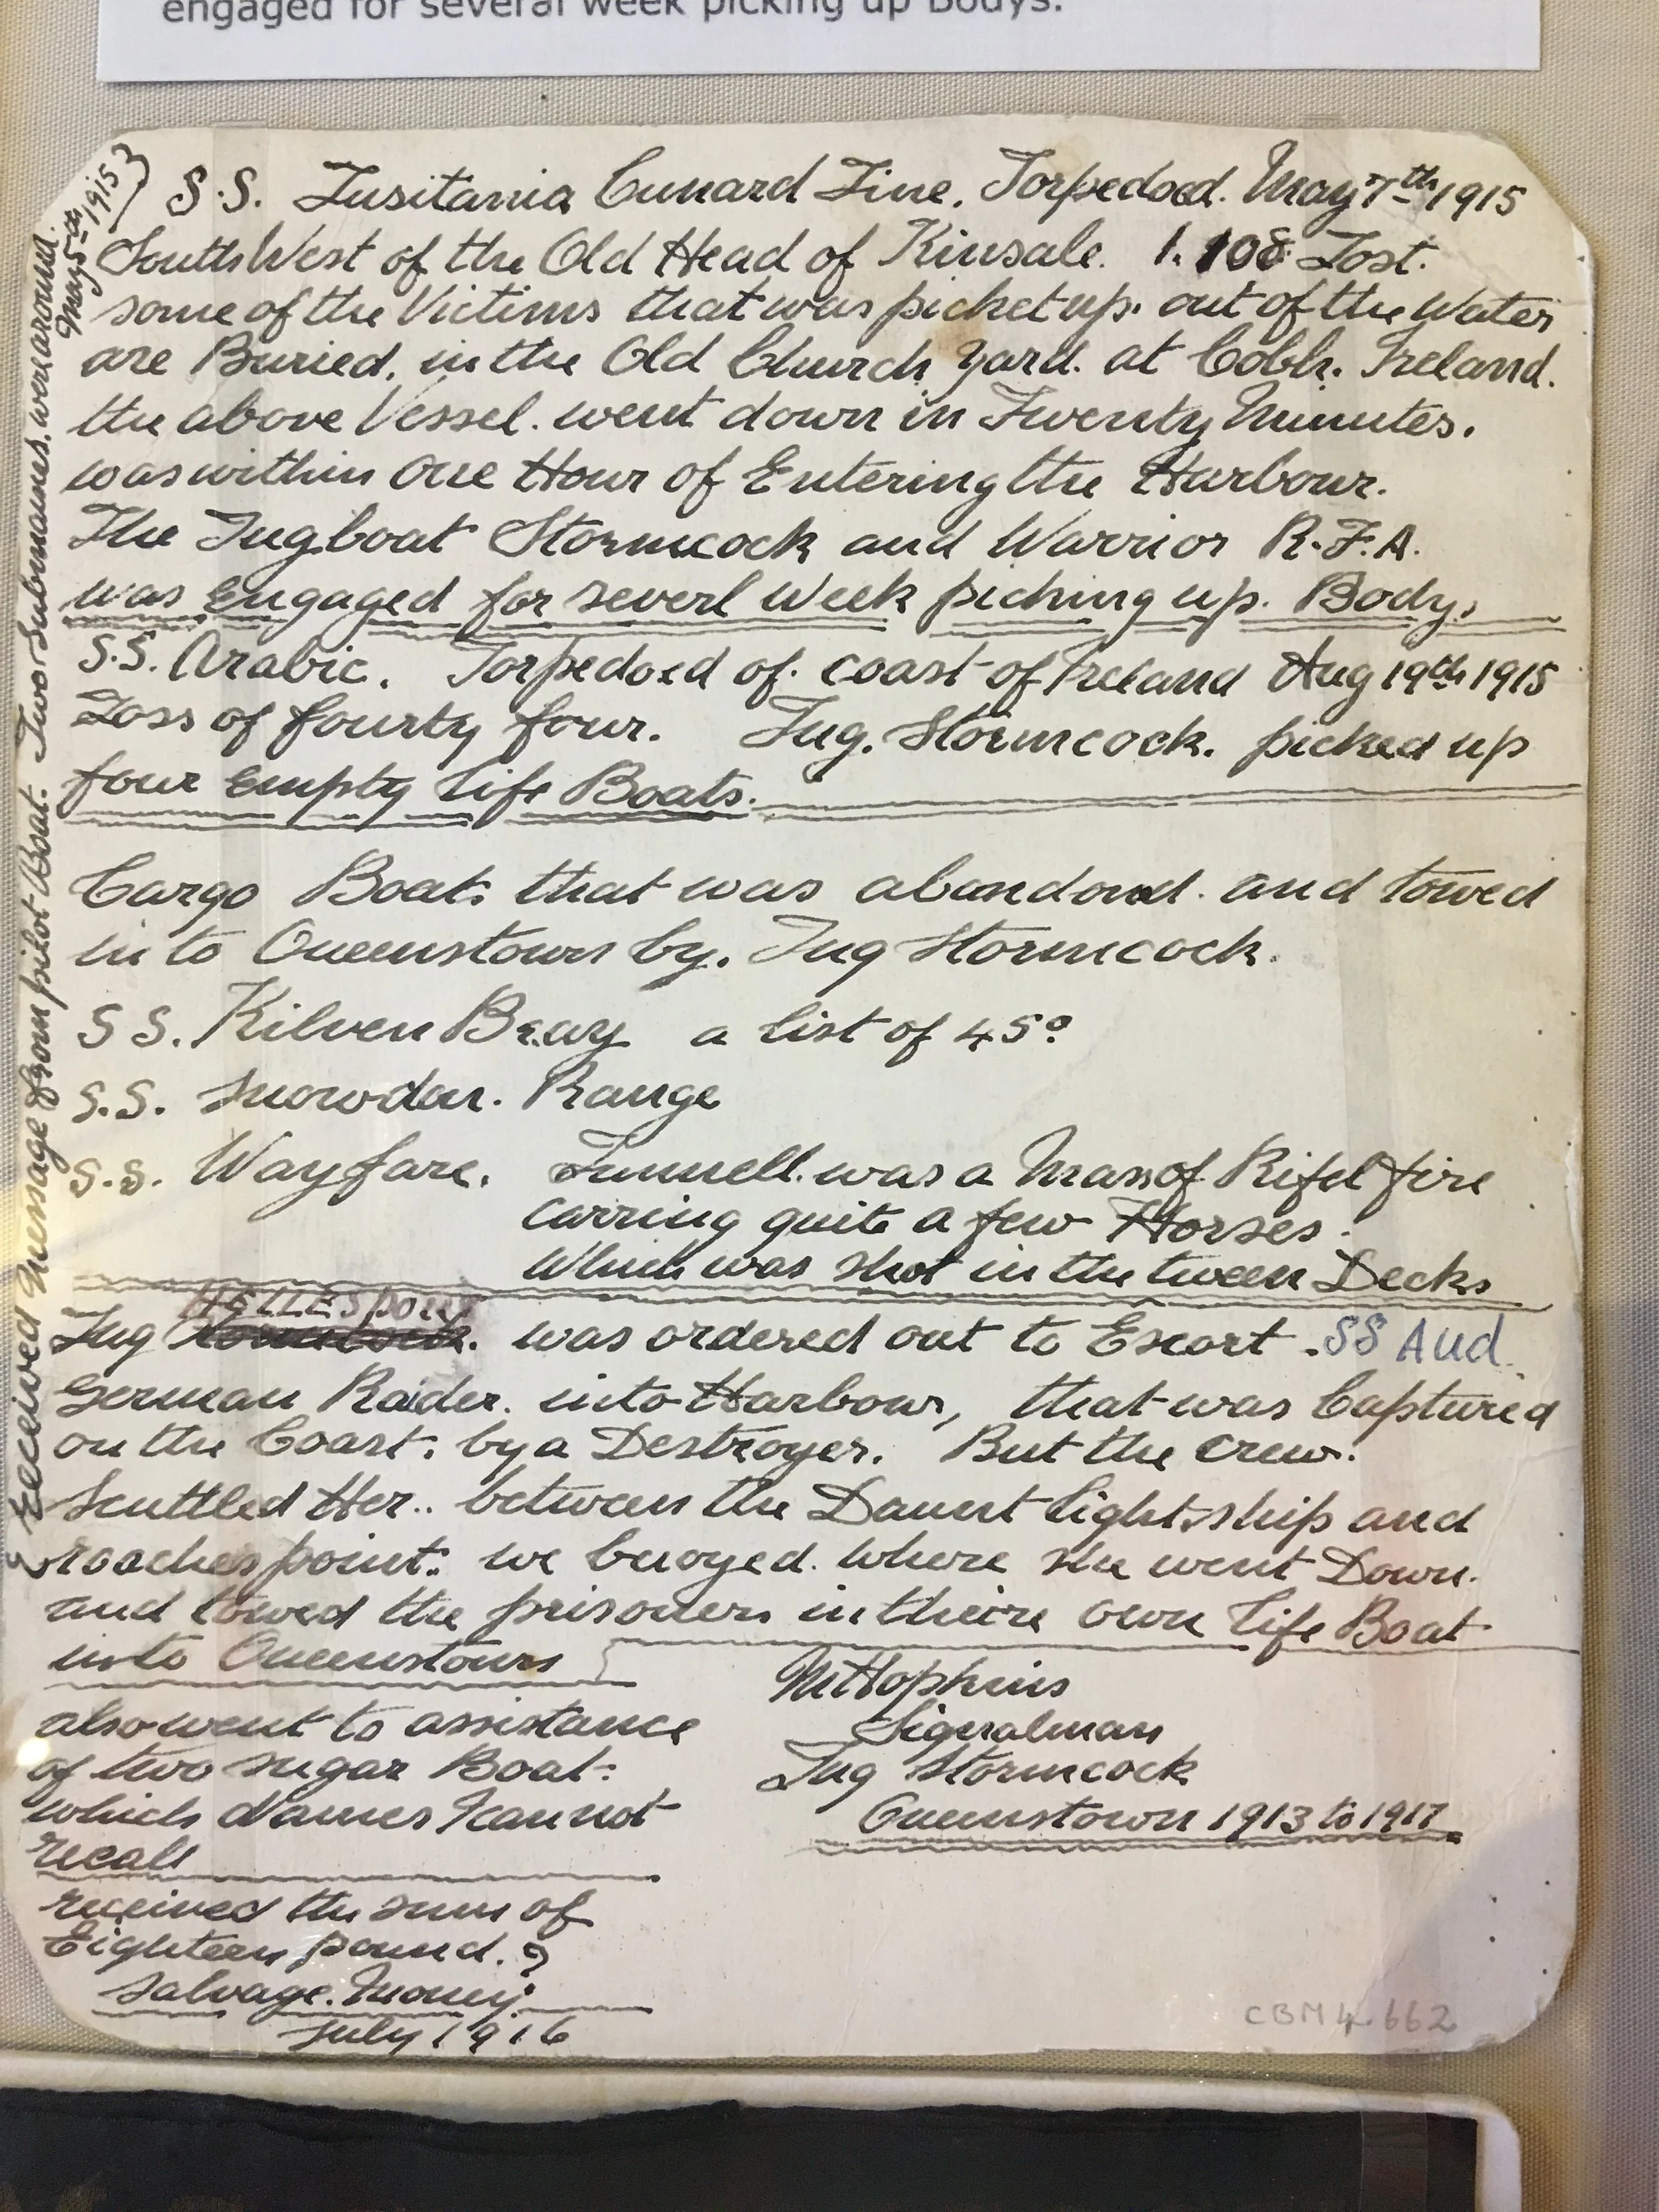 engaged for several week picking up Bodys.
S.S. Lusitania Cunard Line. Torpedoed. May 7th 1915
South West of the Old Head of Kinsale. 1.108 Lost.
some of the Victims that was picket up. out of the Water
are Buried. in the Old Church Yard. at Cobh. Ireland.
the above Vessel. went down in Twenty Minutes.
was within one Hour of Entering the Harbour.
The Tugboat Stormcock and Warrior R.F.A.
was Engaged for severl Week picking up. Bodys
S.S. Arabic. Torpedoed of. coast of Ireland Aug 19th 1915
Loss of fourty four. Tug. Stormcock. picked up
four Empty Life Boats.
Cargo Boats that was abandond. and towed
into Queenstown by. Tug Stormcock.
S S. Kilven Beay a list of 45°
S.S. Snowdon. Range
S.S. Wayfare. Funnell. was a Mass of Rifel fire
carring quite a few Horses.
Which was shot in the tween Decks
HELLESpont
Tug Stormcock. was ordered out to Escort. SS AUd.
German Raider. into Harbour, that was Captured
on the Coast. by a Destroyer. But the crew.
Scuttled Her.. between the Daunt Light.ship and
roaches point: we buoyed. where she went Down.
and towed the prisoners in theire own Life Boat
into Queenstown
also went to assistance
of two sugar Boat:
which Names I can not
recall
received the sum of
Eighteen pound.
salvage. Money.
July 1916
M Hopkins
Signalman
Tug Stormcock
Queenstown 1913 to 1917
CBM 4.662
received message from pilot Boat. Two Submarines. were around.
May 5th 1915